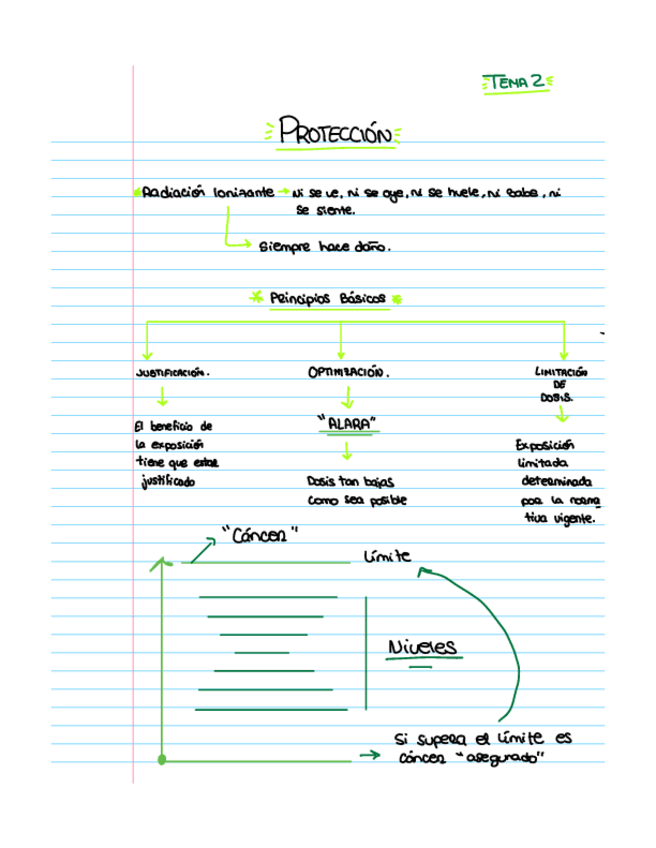 TEMA 2
PROTECCIÓN
Radiación Ionizante → Ni se ve, ni se oye, ni se huele, ni sabe, ni
se siente.
Siempre hace daño.
* Principios Básicos *
JUSTIFICACIÓN.
El beneficio de
la exposición
tiene que estar
justificado
OPTIMIZACIÓN.
"ALARA"
Dosis tan bajas
como sea posible
LIMITACIÓN
DE
DOSIS.
Exposición
limitada
determinada
por la norma
tiva vigente.
"Cáncer"
Límite
Niveles
Si supera el límite es
cáncer "asegurado"